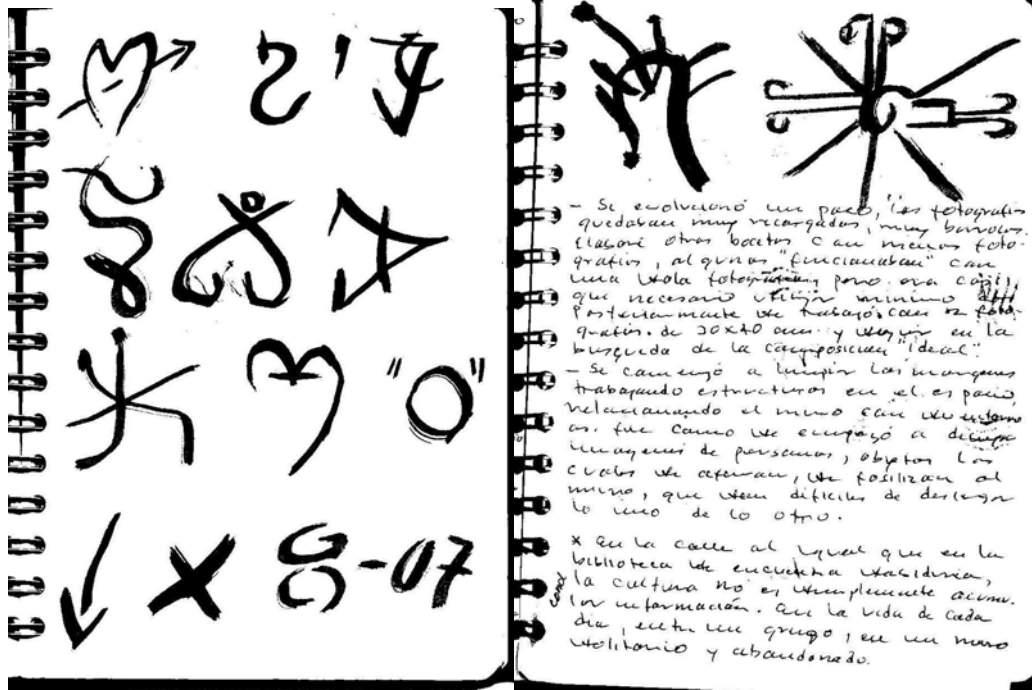 "O"
-07
- Se evolucionó un poco, las fotografías
quedaban muy recargadas, muy barrocas.
Elaboré otros bocetos con menos foto-
grafías, algunas "funcionaban" con
una sola fotografía, pero era casi
que necesario utilizar mínimo
Posteriormente se trabajó con fotó-
grafías. de 30x40 cm. y seguir en la
busqueda de la composición "ideal".
- Se comenzó a limpiar las imagenes
trabajando estructuras en el espacio,
relacionando el muro con su entorno
as. fue como se empezó a
imagenes de personas, objetos los
cuales se aferran, se fosilizan al
muro, que sean dificiles de desligar
lo uno de lo otro.
* en la calle al igual que en la
biblioteca se encuentra sabiduria,
la cultura no es simplemente acumu.
lar información. en la vida de cada
dia, entre un grupo, en un muro
solitario y abandonado.